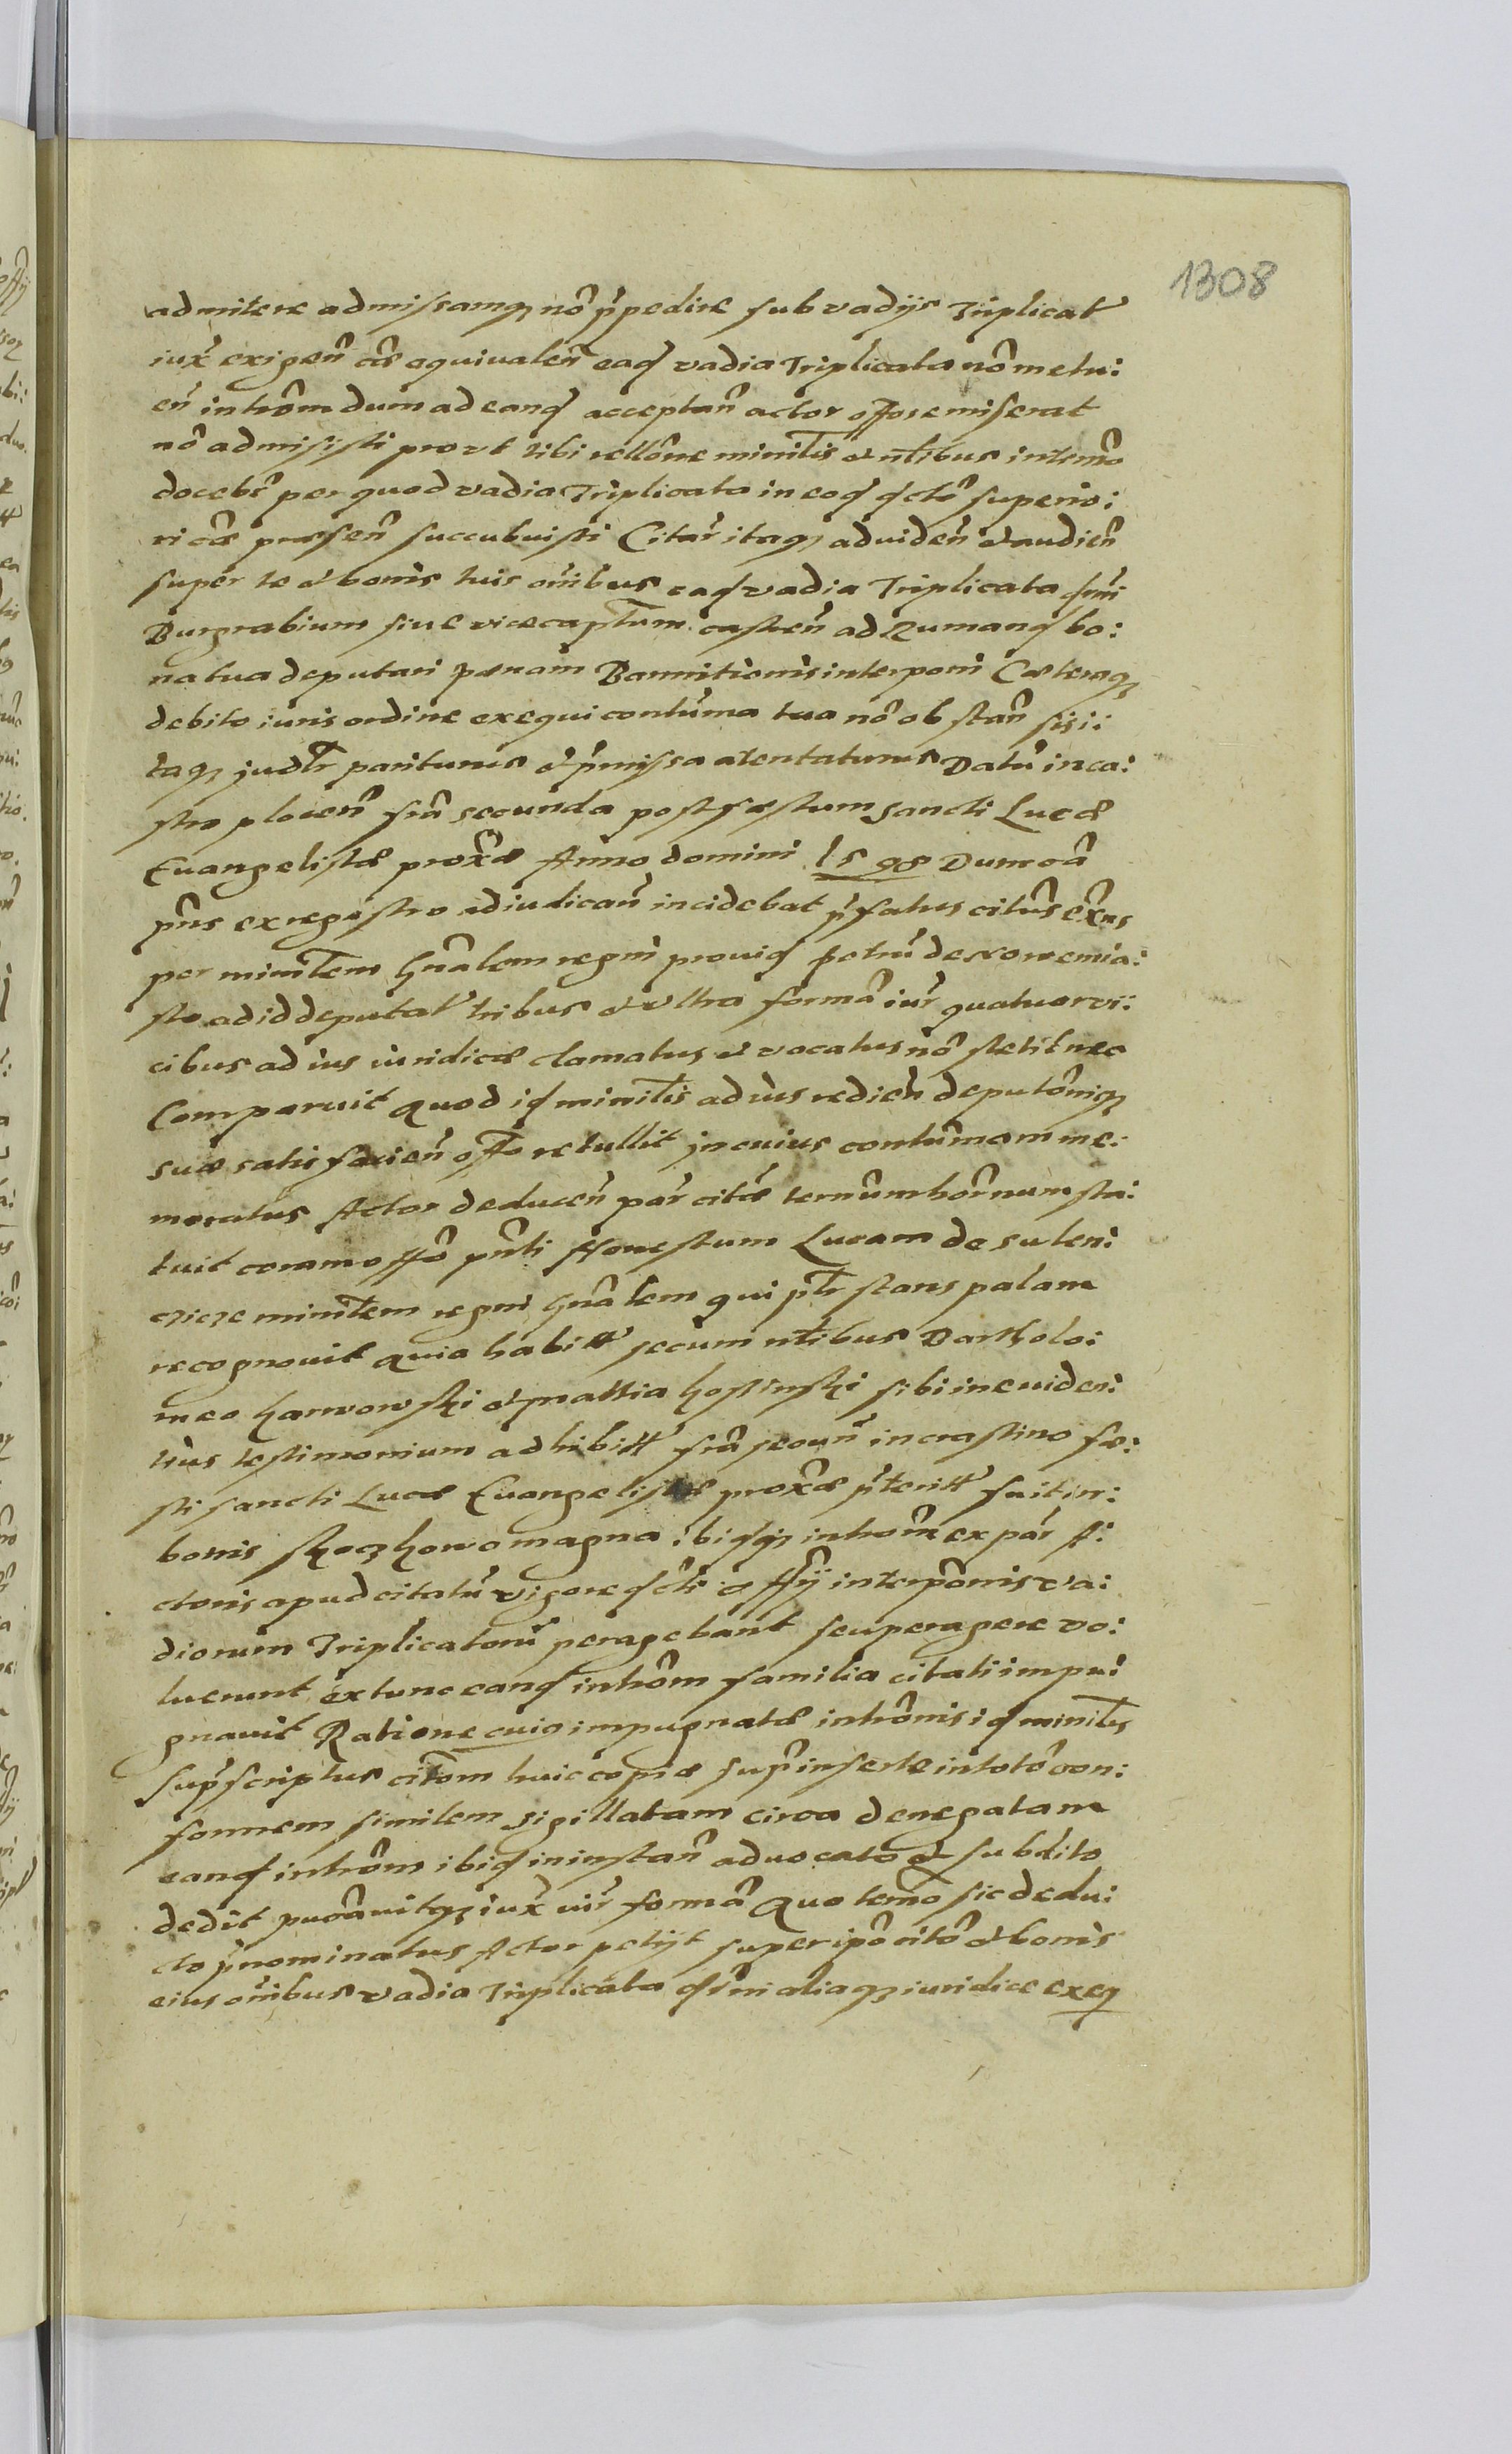 1308
admitere admissamq₃ nō p̄pedire sub vadijs Triplicat
iux̄ exigen̄ cāē equiualen̄ eaq̨ vadia Triplicata nō metu:
en̄ intrōm dum ad eanq̨ acceptan̄ actor offose miserat
nō admisisti prout tibi rellōne minil̄is et nl̄ibus intimō
docebr̄ per quod vadia Triplicata in eoq̨ q̨ctō superio:
ri cāē praesen̄ succubuisti Citar̄ itaq₃ ad viden̄ et audien̄
super te et bonis tuis om̄ibus eaq̨ vadia Triplicata q̨rmi
Burgrabium siue vicecaptl̄um castren̄ ad Rumanq̨ bo:
na tua deputari paenam Bannitionis interponi Caeteraq₃
debito iuris ordine exequi contuma tua nō obstan̄ sisi:
taq₃ judr̄ pariturus et p̄missa atentaturus Datū in ca:
stro plocen̄ fr̄ia secunda post faestum sancti Lucae
Euangelistae proxāē Anno domini 1598 Dum cā
pn̄s ex regestro adiudican̄ incidebat p̄fatus citūs exn̄s
per minil̄em Gnālem regni prouiq̨ Petrū de Noweмia:
sto ad id deputat tribus et vltra formā iur̄ quatuor vi:
cibus ad ius iuridicae clamatus et vocatus nō stetit nec
Comparuit Quod iq̨ minil̄is ad ius redien̄ deputōniq₃
suae satisfacien̄ offo retullit jn cuius contūmam me:
moratus Actor deducen̄ par̄ citāē termūm hor̄num sta:
tuit coram offō pn̄ti Honestum Lucam de
minil̄em regni Gnālem qui pl̄r stans palam
recognouit Quia habitt secum nl̄ibus Bartholo:
meo Karwowski et Mattia Kosinski sibi in euiden:
tius testimonium adhibitt fr̄ia secun̄ in crastino fae:
sti sancti Lucae Euangelistae proxāē p̄teritt fuit in:
bonis magna ibiq̨q₃ intrōm ex par̄ A:
ctoris apud citatū vigore q̨cti offij interpōnis va:
diorum Triplicatorū peragebant seu peragere vo:
luerunt extunc eanq̨ intrōm familia citati impu:
gnauit Ratione cuiq impugnatae intrōnis iq̨ minil̄is
sup̄scriptus citōm huic copiae sup̄ insertae in totō con:
formem similem sigillatam circa denegatam
eanq̨ intrōm ibiq̨ in instan̄ aduocato et subdito
dedit iux̄ iur̄ formā Quo termō sic dedu:
cto p̄nominatus Actor petijt super ipō citō et bonis
eius om̄ibus vadia Triplicata q̨rmi aliaq₃ iuridice exeq